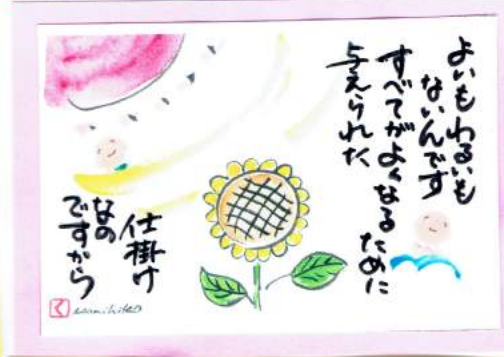 よいもわるいも
ないんです
すべてがよくなるために
与えられた
仕掛け
なの
ですから